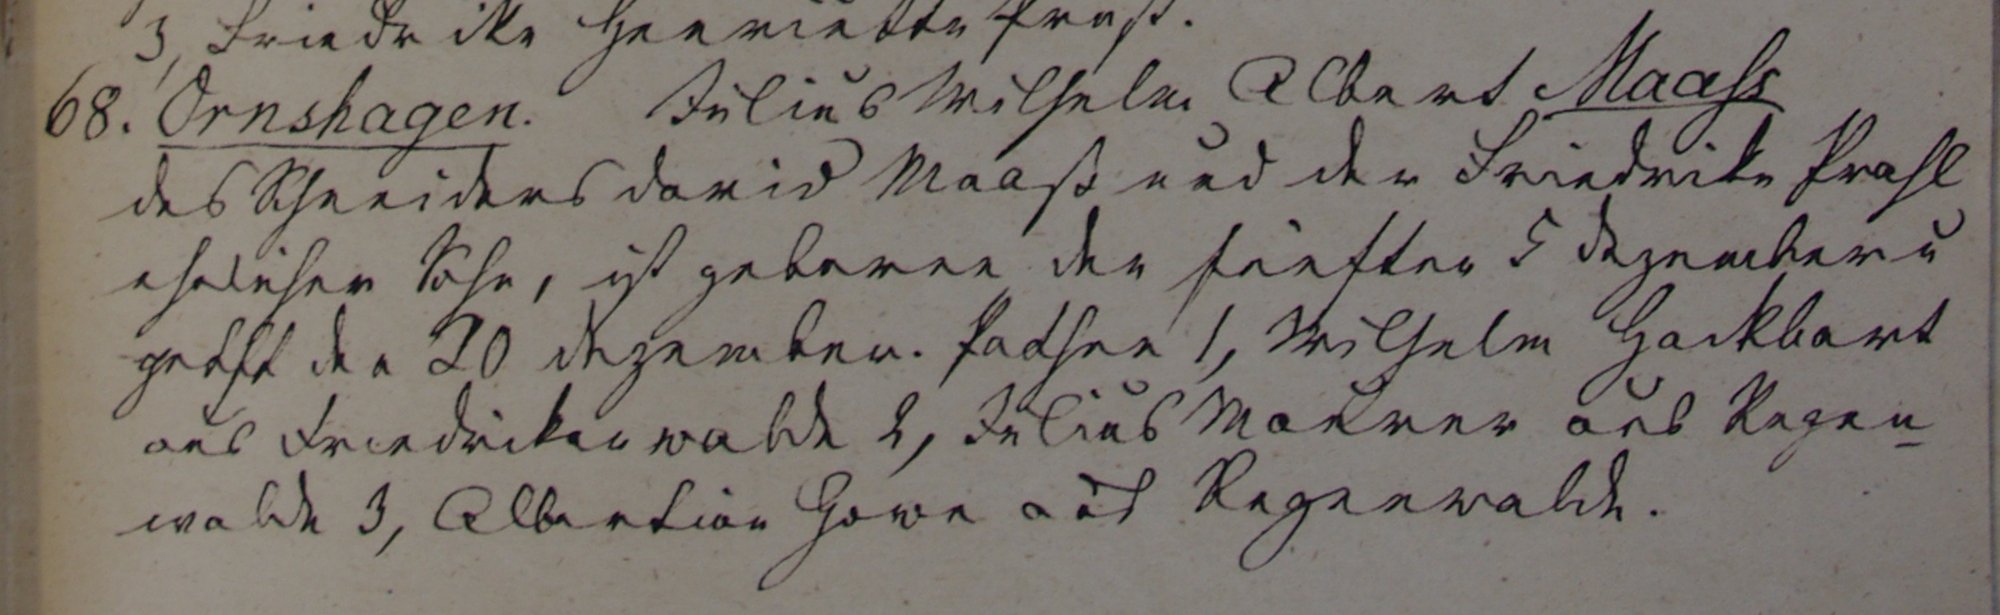 3, Friedrike Henriette Prust.
68. Ornshagen. Julius Wilhelm Albert Maass
des Schneiders David Maaß und der Friedrike Prahl
ehelicher Sohn, ist geboren den fünften 5 Dezember u
getft den 20 Dezember. Pathen 1, Wilhelm Hackbart
aus Friedrikenwalde 2, Julius Maurer aus Regen
walde 3, Albertine aus Regenwalde.